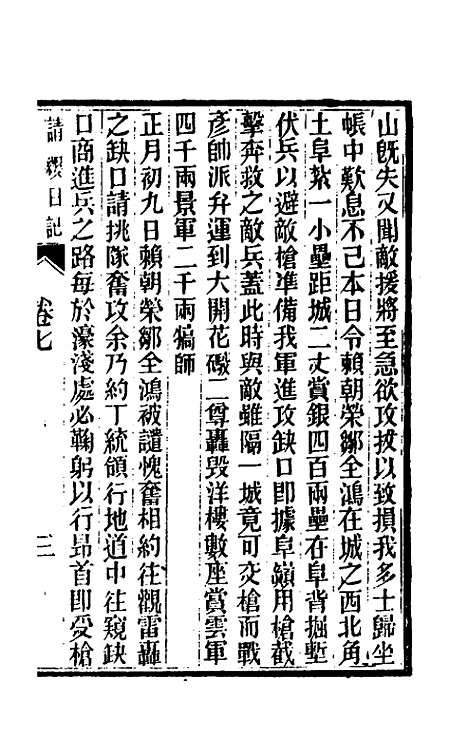 山旣失又聞敵援將至急欲攻拔以致損我多士歸坐
帳中歎息不已本日令賴朝榮鄒全鴻在城之西北角
土阜紮一小壘距城二丈賞銀四百兩壘在阜背掘塹
伏兵以避敵槍準備我軍進攻缺口卽據阜嶺用槍截
擊奔救之敵兵蓋此時與敵雖隔一城竟可交槍而戰
彥帥派弁運到大開花礮二尊轟毀洋樓數座賞雲軍
四千兩景軍二千兩犒師
正月初九日賴朝榮鄒全鴻被譴愧奮相約往觀雷轟
之缺口請挑隊奮攻余乃約丁統領行地道中往窺缺
口商進兵之路每於濠淺處必鞠躬以行昂首卽受槍
請纓日記
卷七
三